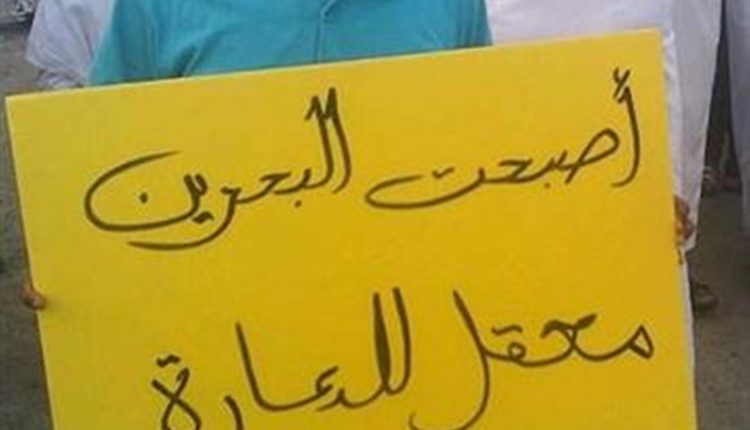 أصبحت البحرين
معقل للدعارة